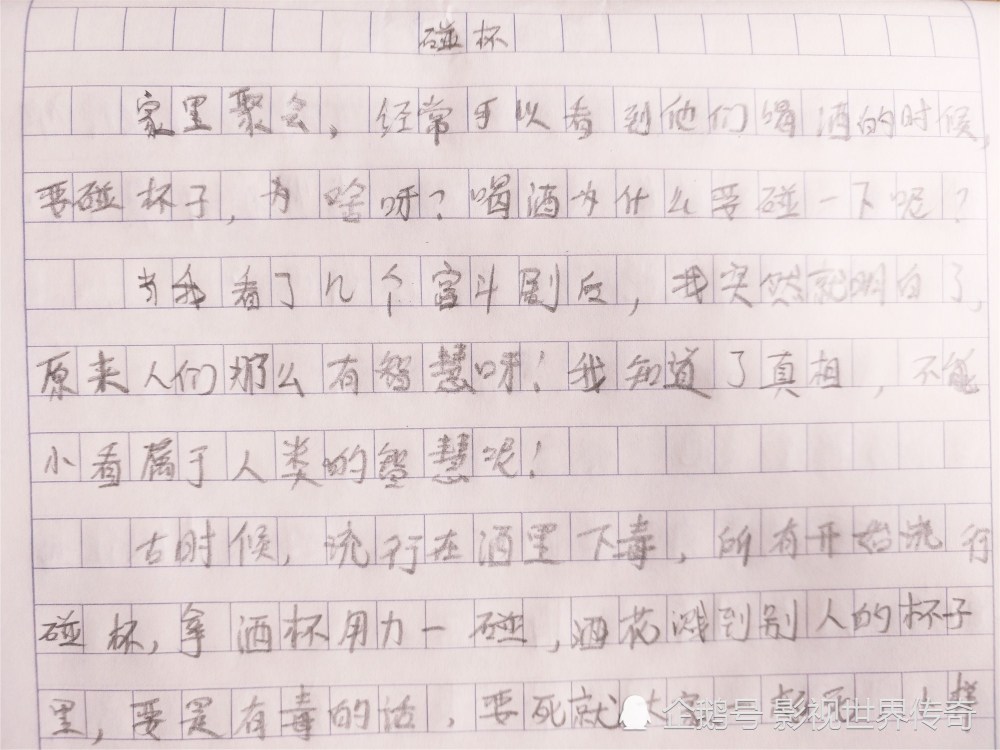 碰杯
家里聚会，经常可以看到他们喝酒的时候，
要碰杯子，为啥呀？喝酒为什么要碰一下呢？
当我看了几个宫斗剧后，我突然就明白了，
原来人们那么有智慧呀！我知道了真相，不能
小看属于人类的智慧呢！
古时候，流行在酒里下毒，所有开始流行
碰杯，拿酒杯用力一碰，酒花溅到别人的杯子
里，要是有毒的话，要死就
企鹅号 影视世界传奇